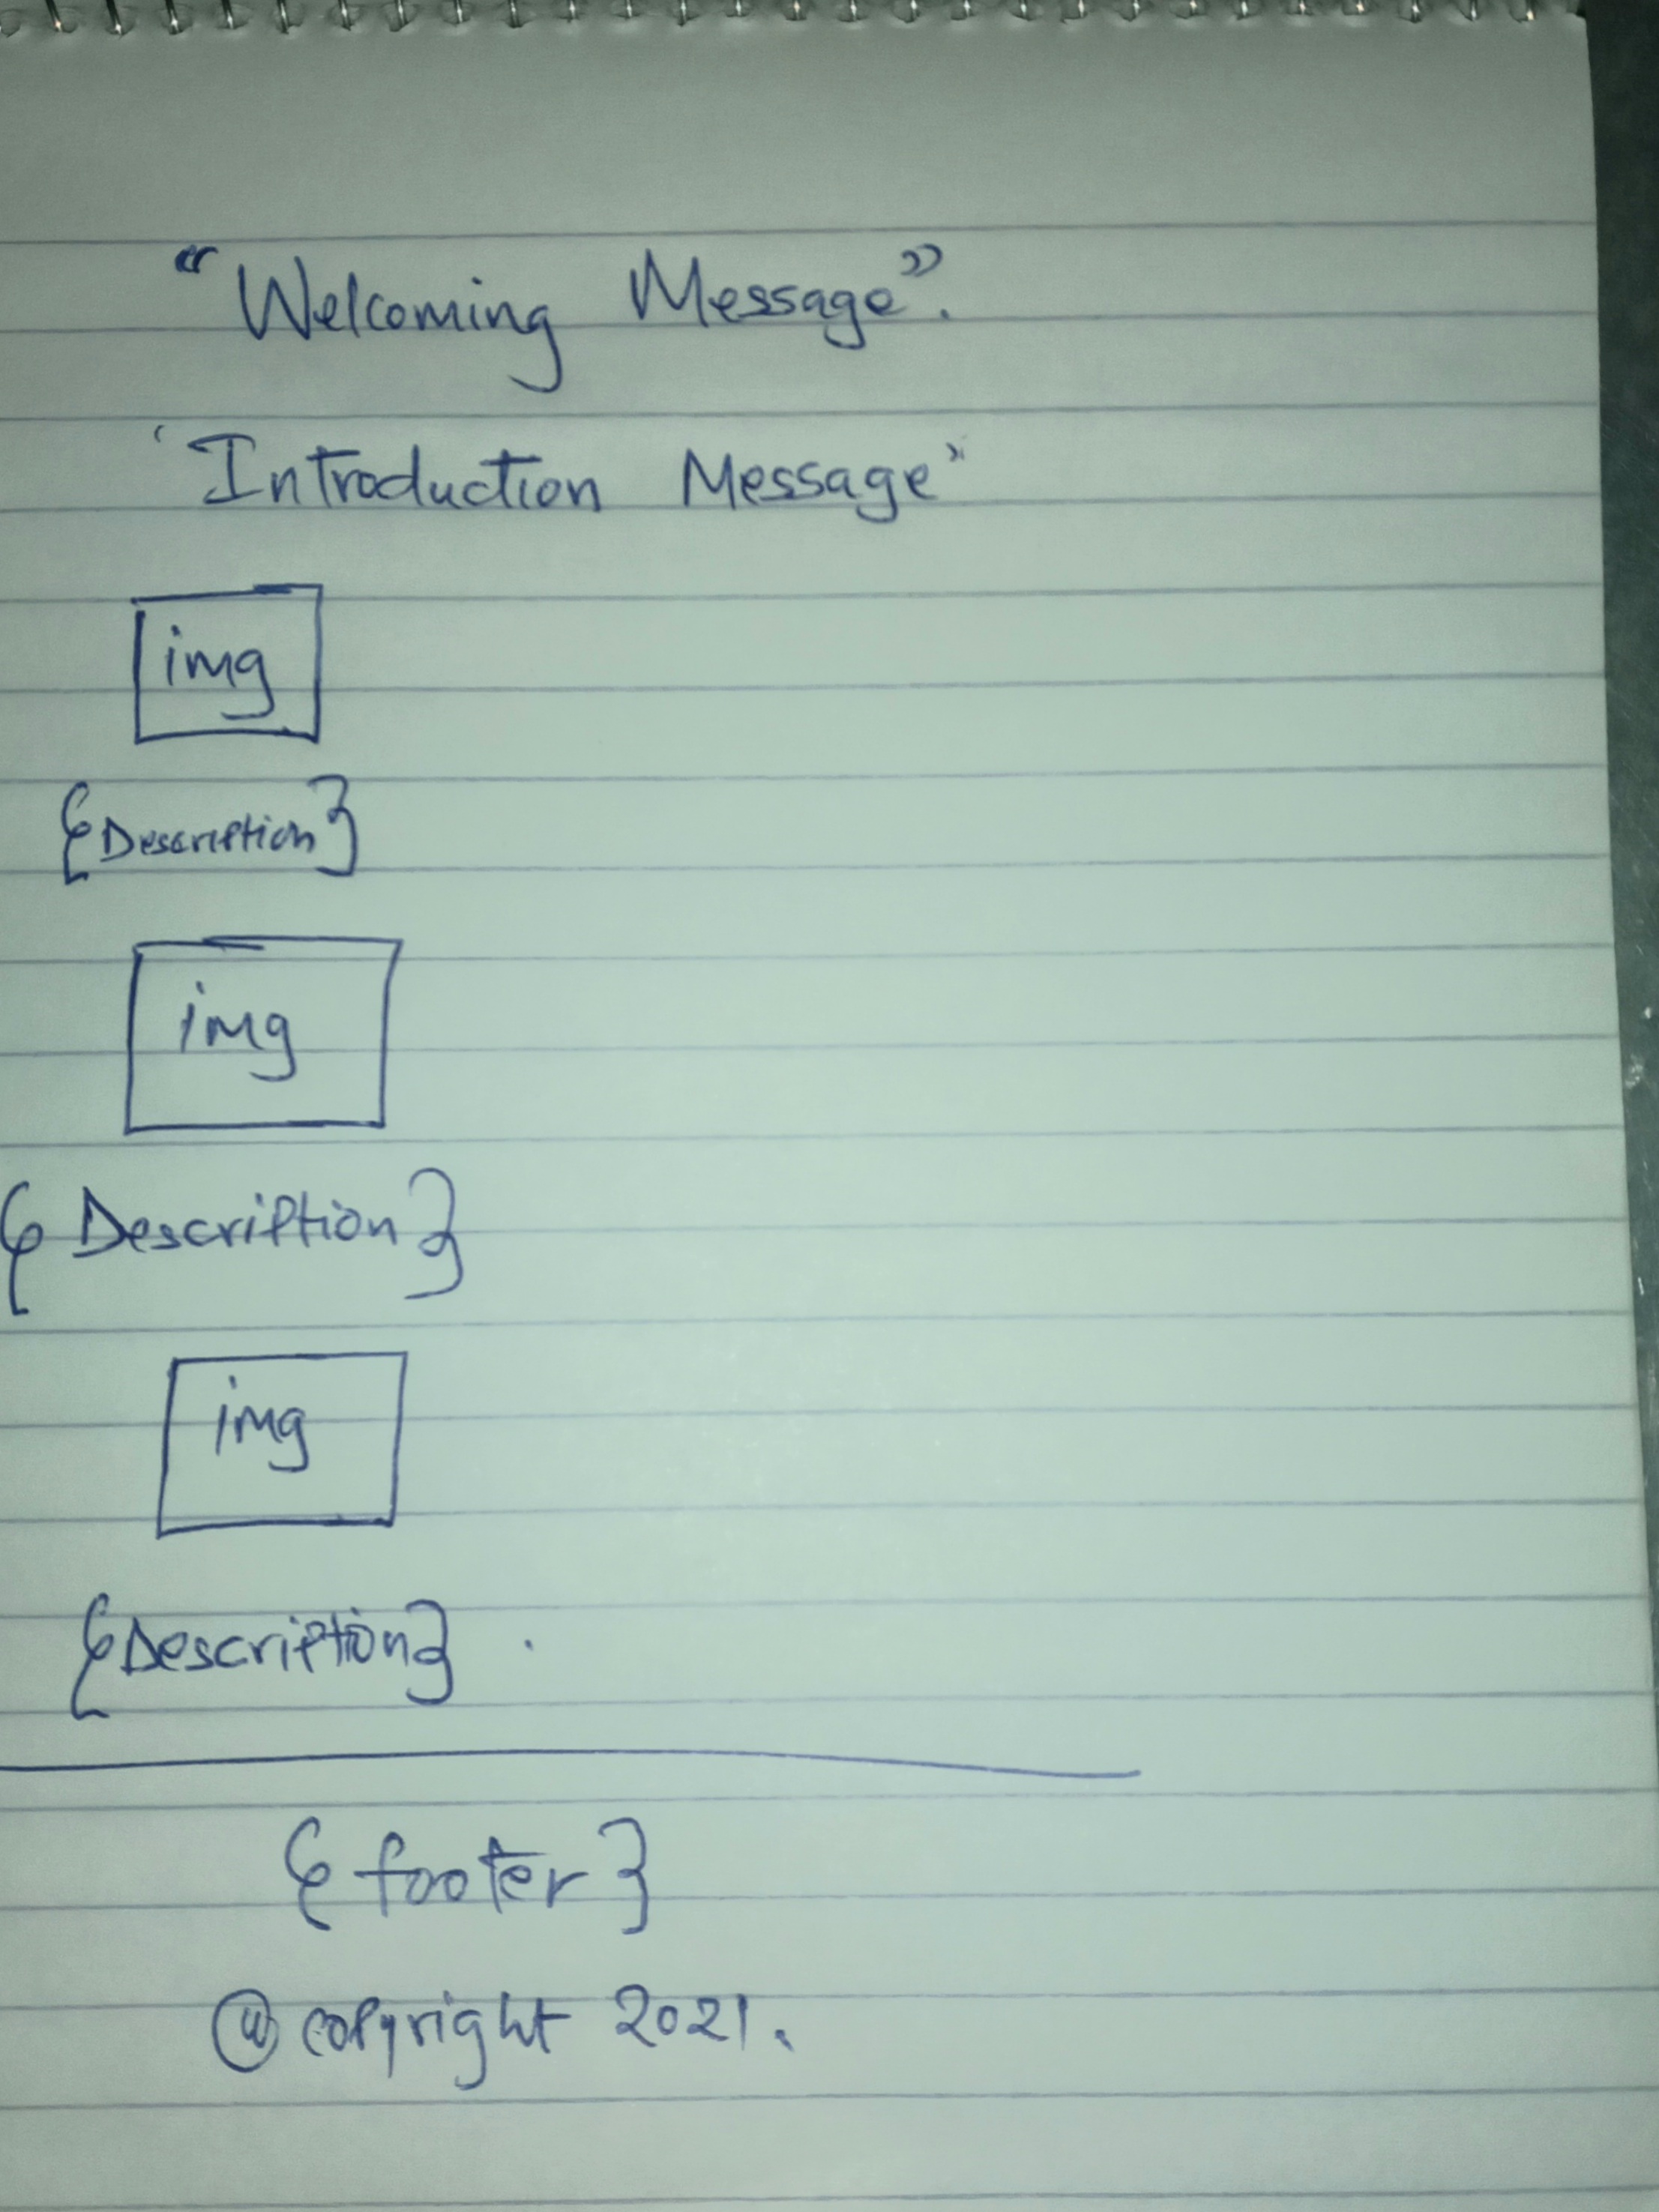 "Welcoming Message".
'Introduction Message"
img
{Description}
img
{Description}
img
{Description}
{footer}
@ copyright 2021.